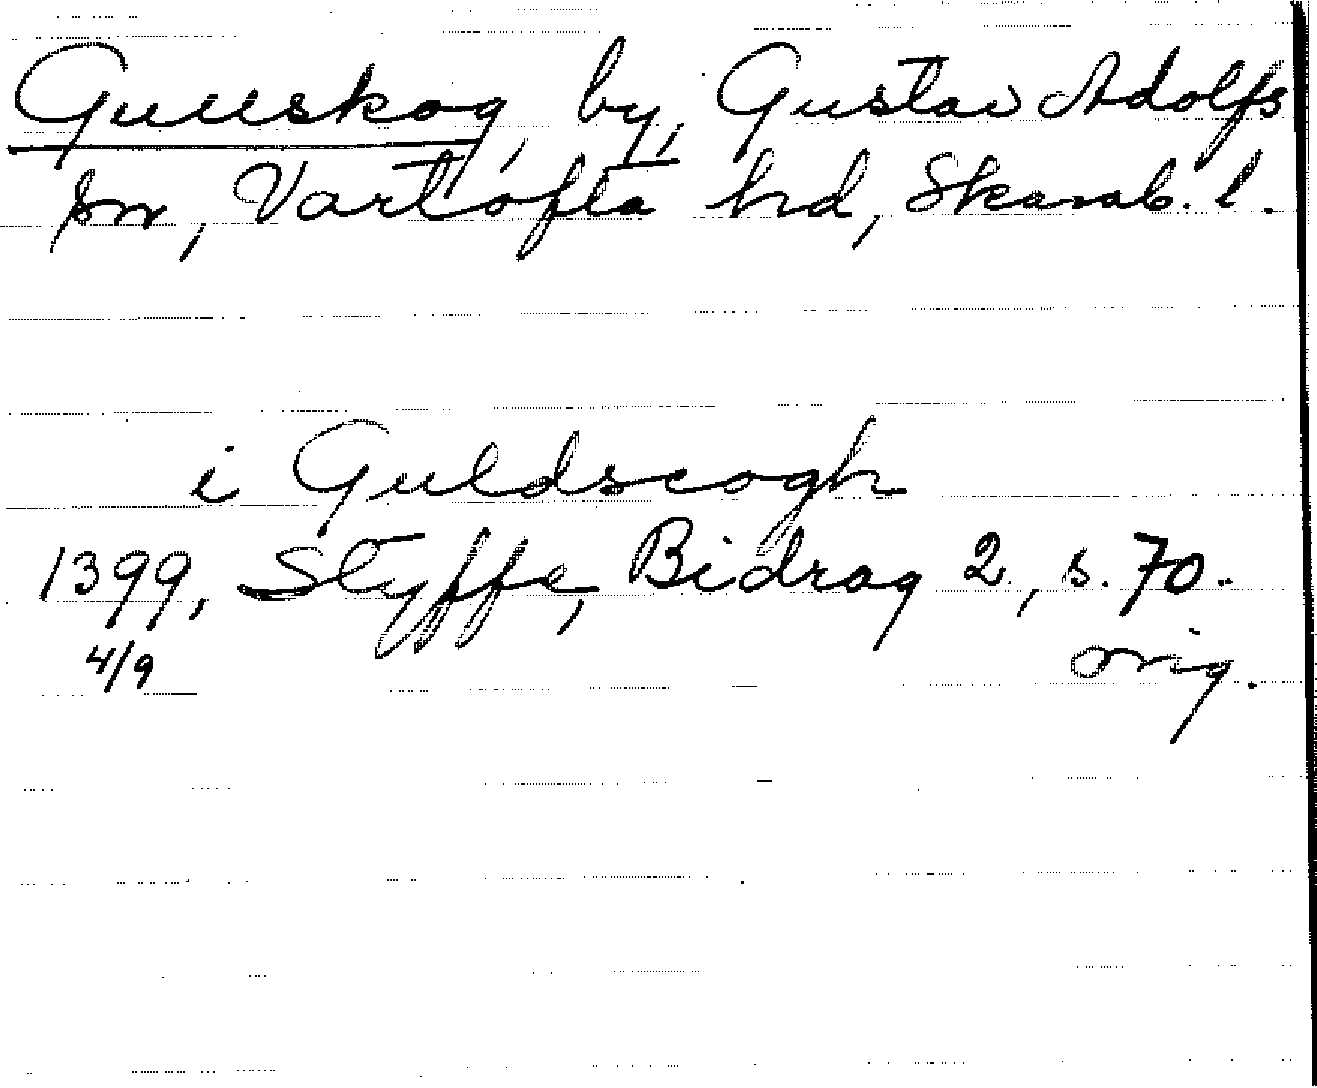 Gullskog, by, Gustav Adolfs
sn, Vartofta hd, Skarab. l.
i Guldscogh
1399, Styffe, Bidrag 2, s. 70.
4/9 orig.